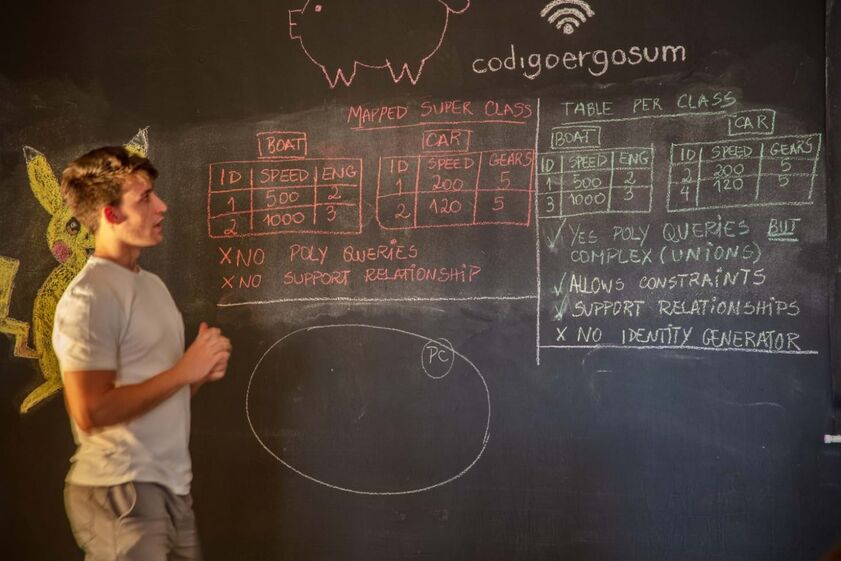 codigoergosum
MAPPED SUPER CLASS
BOAT
ID SPEED ENG
1 500 2
2 1000 3
CAR
ID SPEED GEARS
1 200 5
2 120 5
X NO POLY QUERIES
X NO SUPPORT RELATIONSHIP
TABLE PER CLASS
BOAT
ID SPEED ENG
1 500 2
3 1000 3
CAR
ID SPEED GEARS
2 200 5
4 120 5
✓ YES POLY QUERIES BUT
COMPLEX (UNIONS)
✓ ALLOWS CONSTRAINTS
✓ SUPPORT RELATIONSHIPS
X NO IDENTITY GENERATOR
PC